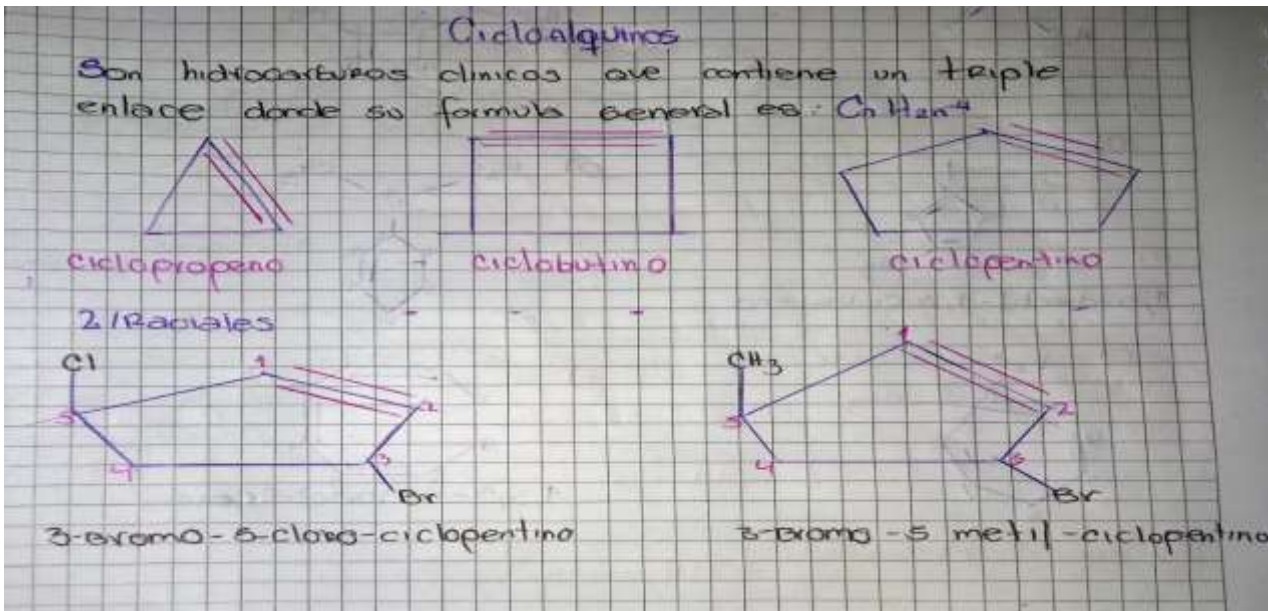 Cicloalquinos
Son hidrocarburos clinicos que contiene un triple
enlace donde su formula general es: CnH2n-4
ciclopropeno
ciclobutino
ciclopentino
2/Raciales
Cl
1
2
3
4
5
Br
3-bromo-5-cloro-ciclopentino
CH3
1
2
3
4
5
Br
3-bromo-5 metil-ciclopentino